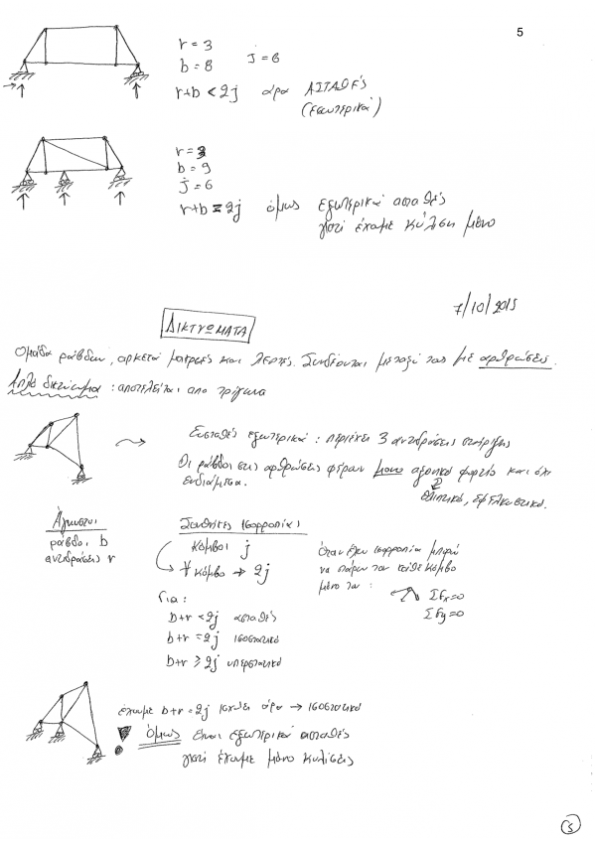 5
r = 3
b = 8 j = 6
r+b < 2j άρα ΑΣΤΑΘΕΣ
(Εσωτερικά)
r = 3
b = 9
j = 6
r+b = 2j όμως εξωτερικά ασταθές
γιατί έχουμε κύλιση μόνο
7/10/2015
ΔΙΚΤΥΩΜΑΤΑ
Ομάδα ράβδων, αρκετά μακριές και λεπτές. Συνδέονται μεταξύ τους με αρθρώσεις.
Απλό δικτύωμα : αποτελείται απο τρίγωνα
Ευσταθές εξωτερικά : περιέχει 3 αντιδράσεις στήριξης
Οι ράβδοι στις αρθρώσεις φέρουν μόνο αξονικό φορτίο και όχι
ενδιάμεσα.
θλιπτικό, εφελκυστικό.
Άγνωστοι
ράβδοι b
αντιδράσεις r
Συνθήκες ισορροπίας
κόμβοι j
∀ κόμβο → 2j
Για:
b+r < 2j ασταθές
b+r = 2j ισοστατικό
b+r ≥ 2j υπερστατικό
όταν έχω ισορροπία μπορώ
να πάρω τον κάθε κόμβο
μόνο του :
ΣFx=0
ΣFy=0
έχουμε b+r = 2j ισχύει άρα → ισοστατικό
! Όμως είναι εξωτερικά ασταθές
γιατί έχουμε μόνο κυλίσεις
5